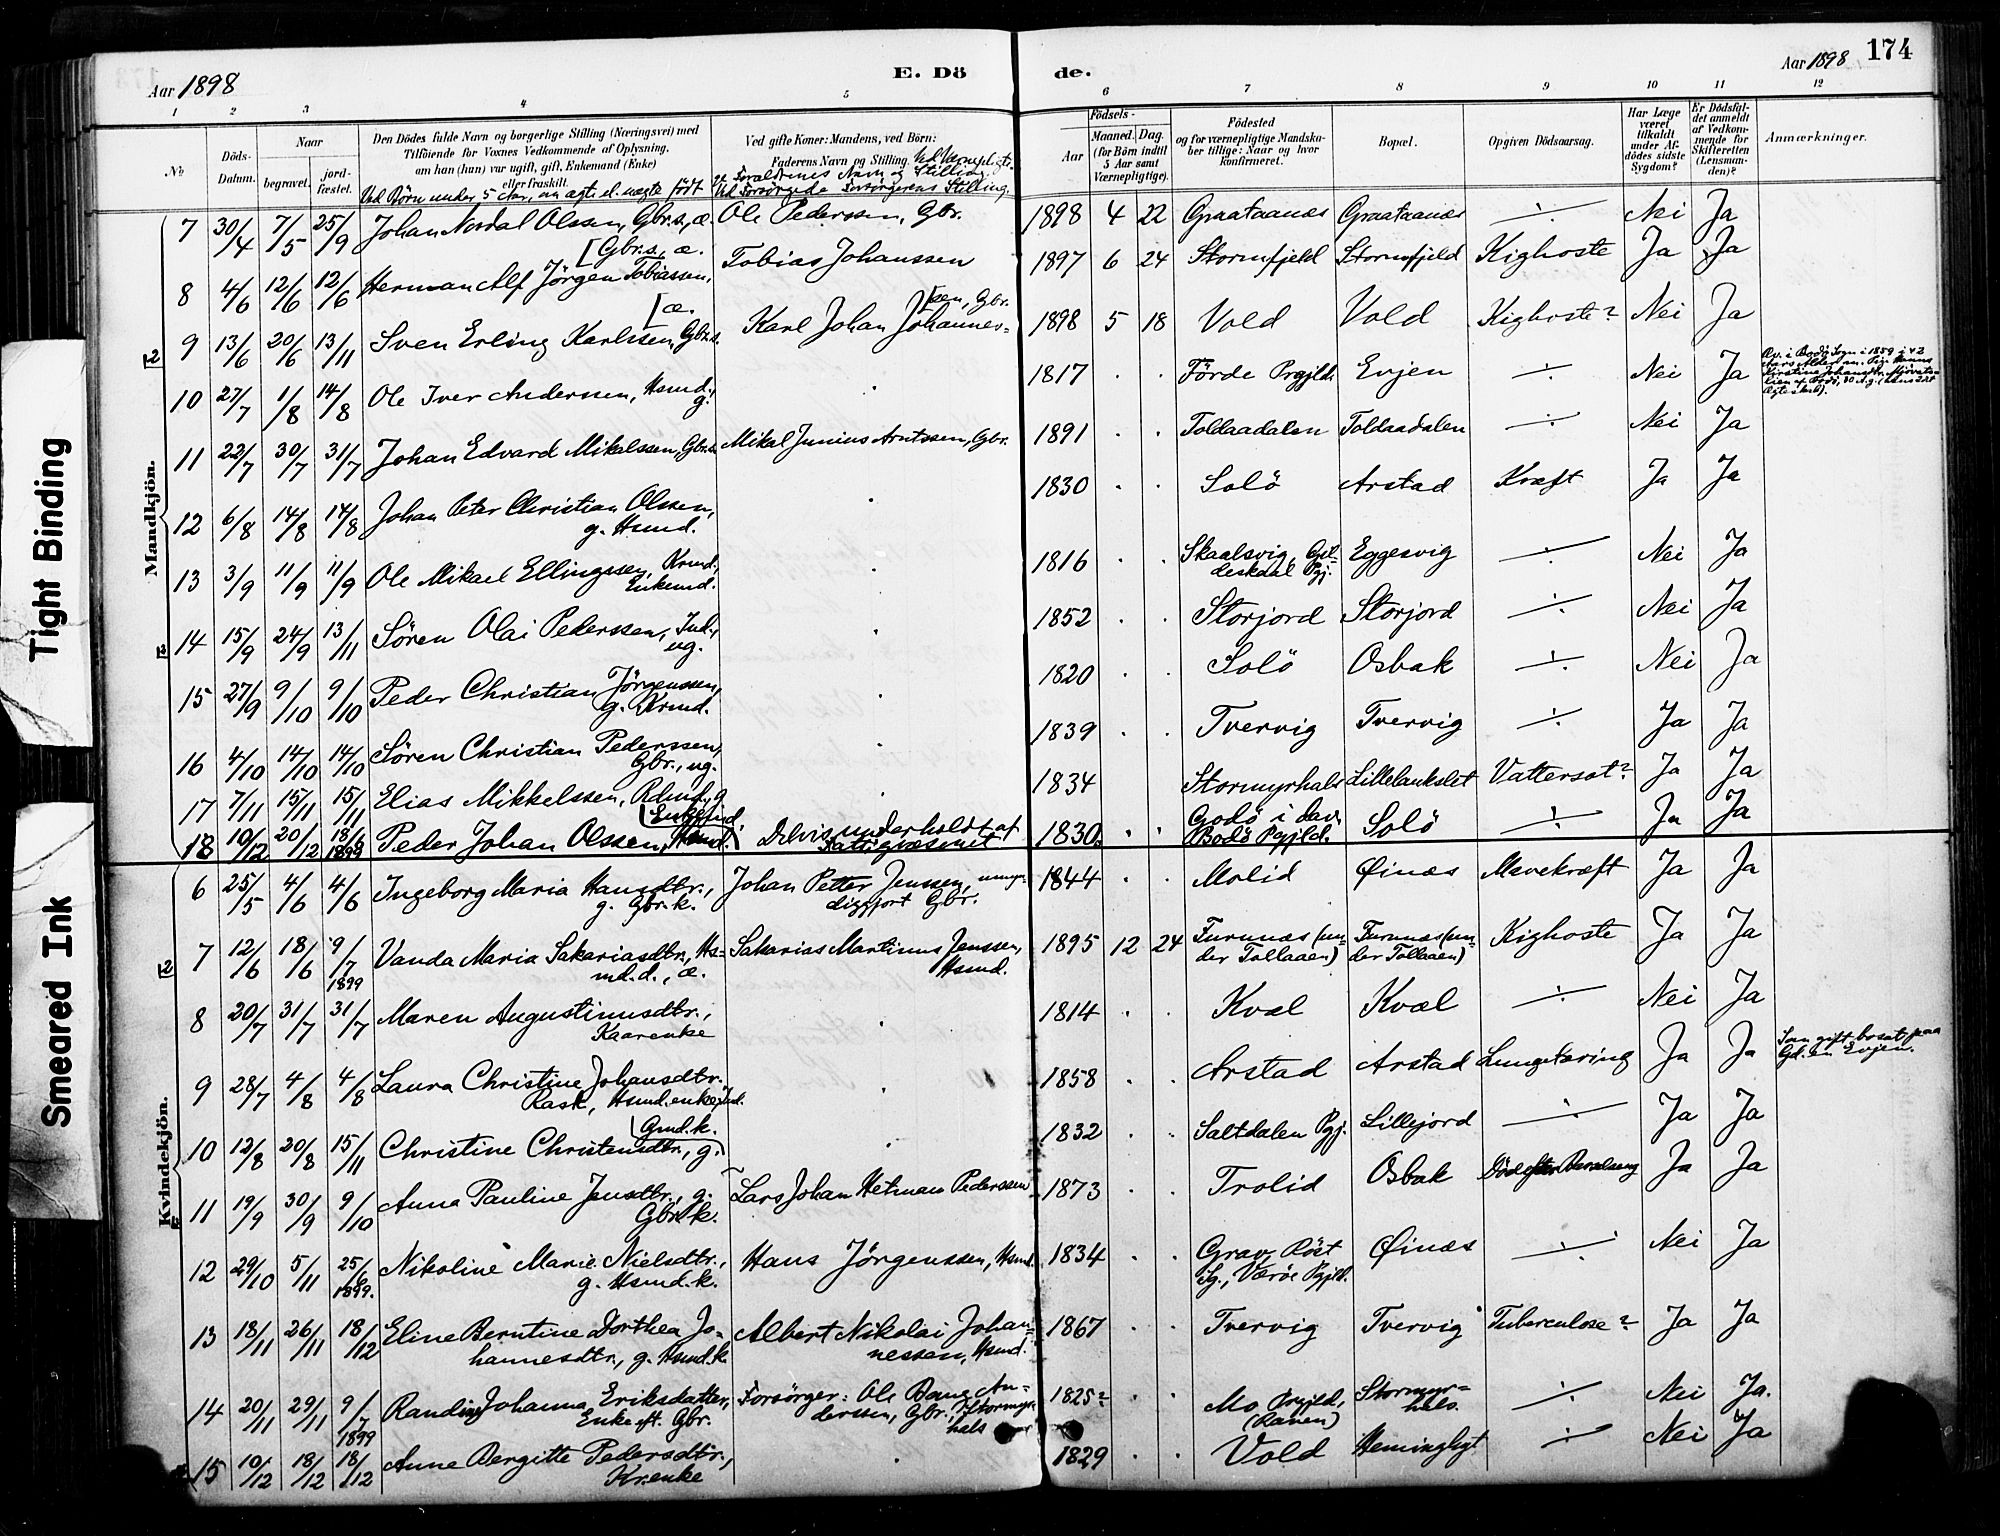 Tight Binding
Smeared Ink
Aar 1898
E. Dö
de.
Aar 1898
174
1 2 3 4 5 6 7 8 9 10 11 12
№
Döds-Datum.
Naar
begravet.
jord-fæstet.
Den Dödes fulde Navn og borgerlige Stilling (Næringsvei) med
Tilföiende for Voxnes Vedkommende af Oplysning,
om han (hun) var ugift, gift, Enkemand (Enke)
eller fraskilt.
Ved Börn under 5 Aar, om ægte el. uægte født
Ved gifte Koner: Mandens, ved Börn:
Faderens Navn og Stilling.
Forældrenes Navn og Stilling.
Ved Forsørgede Forsørgerens Stilling.
Födsels-
Aar
Maaned. Dag.
(for Börn indtil
5 Aar samt
Værnepligtige).
Födested
og for værnepligtige Mandska-
ber tillige: Naar og hvor
konfirmeret.
Bopæl.
Opgiven Dödsaarsag.
Har Læge
været
tilkaldt
under Af-
dödes sidste
Sygdom?
Er Dödsfal-
det anmeldt
af Vedkom-
mende for
Skifteretten
(Lensman-
den)?
Anmærkninger.
Mandkjön.
7 30/4 7/5 25/9 Johan Nordal Olssen, Gbr.s., æ. Ole Pederssen, Gbr. 1898 4 22 Graataanæs Graataanæs ÷ Nei Ja
[Gbr.s., æ.
8 4/6 12/6 12/6 Herman Alf Jörgen Tobiassen, Tobias Johanssen 1897 6 24 Stormfjeld Stormfjeld Kighoste Ja Ja
[æ. [sen, Gbr.
9 13/6 20/6 13/11 Sven Erling Karlssen, Gbr.s. Karl Johan Johannes- 1898 5 18 Vold Vold Kighoste? Nei Ja
10 27/7 1/8 14/8 Ole Iver Anderssen, Hsmd., g. 1817 Förde Prgjld. Evjen ÷ Nei Ja
11 22/7 30/7 31/7 Johan Edvard Mikalssen, Gbr.s. Mikal Junius Arntssen, Gbr. 1891 Toldaadalen Toldaadalen ÷ Nei Ja
12 6/8 14/8 14/8 Johan Peter Christian Olssen,
g. Hsmd. 1830 Solö Arstad Kræft Ja Ja
13 3/9 11/9 11/9 Ole Mikael Ellingssen, Krmd.,
Enkemd. 1816 Skaalsvig, Gil-
deskaal Pgj. Eggesvig ÷ Nei Ja
14 15/9 24/9 13/11 Sören Olai Pederssen, Ind.,
ug. 1852 Storjord Storjord ÷ Nei Ja
15 27/9 9/10 9/10 Peder Christian Jörgenssen,
g. Krmd. 1820 Solö Osbak ÷ Nei Ja
16 4/10 14/10 14/10 Sören Christian Pederssen,
Gbr., ug. 1839 Tvervig Tvervig ÷ Ja Ja
17 7/11 15/11 15/11 Elias Mikkelssen, 1834 Stormyrhals Vattersot? Ja Ja
18 19/12 20/12 1899 Peder Johan Olssen, Delvis underholdt af
Fattigvæsenet 1830 Godö i dav.
Bodö Pgjld. Solö ÷ Ja Ja
Kvindekjön.
6 25/5 4/6 4/6 Ingeborg Maria Hansdtr.,
g. Gbr.k. Johan Petter Jenssen, umyn-
diggjort Gbr. 1844 Molid Øinæs Mavekræft Ja Ja
7 12/6 18/6 9/7 1899 Vanda Maria Sakariasdtr., Hs-
md.d., æ. Sakarias Martinus Jenssen,
Hsmd. 1895 12 24 Furunæs (un-
der Tollaaen) Furunæs (un-
der Tollaaen) Kighoste Ja Ja
8 20/7 31/7 31/7 Maren Augustinusdtr.,
Kaarenke 1814 Kvæl Kvæl ÷ Nei Ja
9 28/7 4/8 4/8 Laura Christine Johansdtr.
Rask, Hsmd.enke, Ind. 1858 Arstad Arstad Lungetæring Ja Ja Som gift bosat paa
Gd.en Evjen.
10 12/8 20/8 15/11 Christine Christensdtr., g.
(Gmd.k. 1832 Saltdalen Pgj. Lillejord ÷ Ja Ja
11 19/9 30/9 9/10 Anna Pauline Jensdtr., g.
Gbr.k. Lars Johan Hetman Pederssen 1873 Trolid Osbak Død efter Barselseng Ja Ja
12 29/10 5/11 25/6 1899. Nikoline Marie Nielsdtr.,
g. Hsmd.k. Hans Jörgenssen, Hsmd. 1834 Grav, Röst
Sg., Væröe Pgjld. Øinæs ÷ Nei Ja
13 18/11 26/11 18/12 Eline Berntine Dorthea Jo-
hannesdtr., g. Hsmd.k. Albert Nikolai Johan-
nessen, Hsmd. 1867 Tvervig Tvervig Tuberculose? Ja Ja
14 20/11 29/11 9/7 1899 Randine Johanna Eriksdatter,
Enke eft. Gbr. Forsörger: Ole Bang An-
derssen, Gbr., Stormyr-
hals 1825? Mo Prgjld.
(Ranen) Stormyr-
hals. ÷ Nei Ja.
15 10/12 18/12 18/12 Anne Bergitte Pedersdtr.,
Kr.enke 1829 Vold Hemingligt ÷ Nei Ja